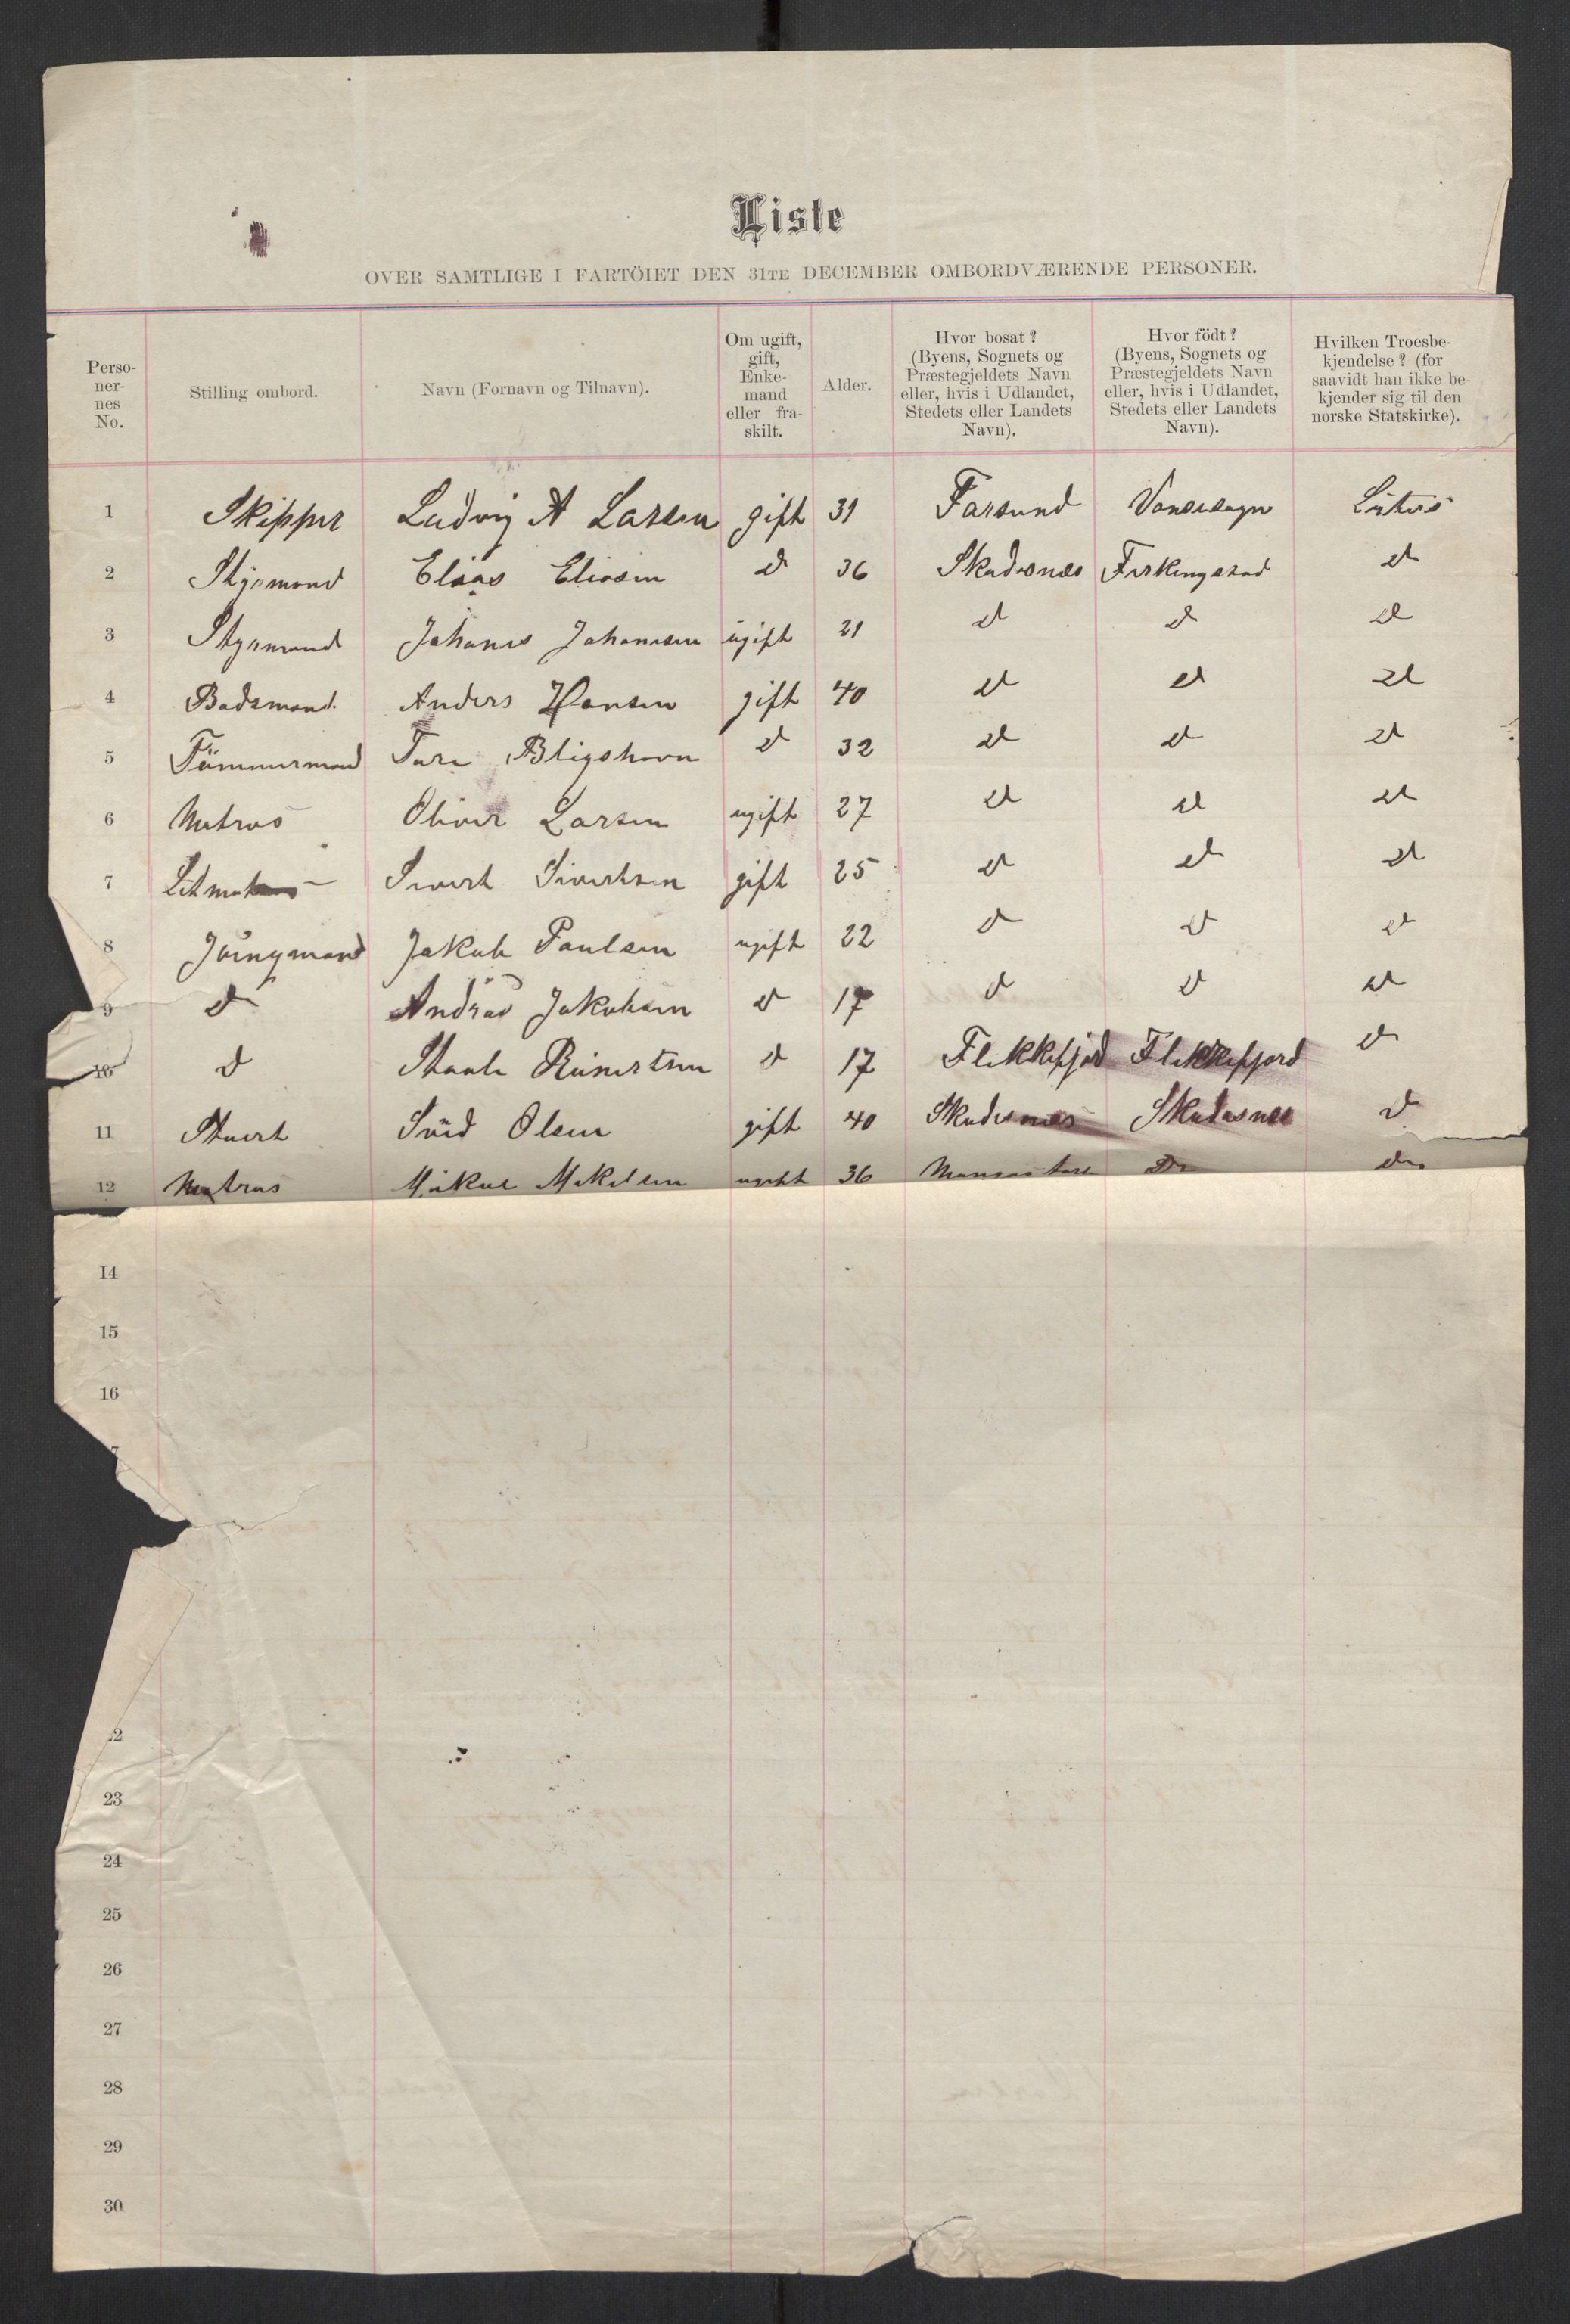 Liste
OVER SAMTLIGE I FARTÖIET DEN 31TE DECEMBER OMBORDVÆRENDE PERSONER.
Perso-
ner-
nes
No.
Stilling ombord.
Navn (Fornavn og Tilnavn).
Om ugift,
gift,
Enke-
mand
eller fra-
skilt.
Alder.
Hvor bosat?
(Byens, Sognets og
Præstegjeldets Navn
eller, hvis i Udlandet,
Stedets eller Landets
Navn).
Hvor födt?
(Byens, Sognets og
Præstegjeldets Navn
eller, hvis i Udlandet,
Stedets eller Landets
Navn).
Hvilken Troesbe-
kjendelse? (for
saavidt han ikke be-
kjender sig til den
norske Statskirke).
1 Skipper Ludvig A Larsen gift 31 Farsund Vansesogn
2 Styrmand Elias Eliasen d 36 Skudesnæs Ferkingstad d
3 Styrmand Johanes Johanesen ugift 21 d d d
4 Badsmand Anders Hansen gift 40 d d d
5 Tömmermand Tore d 32 d d d
6 Matros Oliver Larsen ugift 27 d d d
7 Sivert Sivertsen gift 25 d d d
8 Jungmand Jakob Paulsen ugift 22 d d d
9 d Andreas Jakobsen d 17 d d d
10 d Reinertsen d 17 Flekkefjord Flekkefjord d
11 Stuert Olsen gift 40 Skudesnes Skudesnes d
12 Matros Mikal Mikelsen ugift 36 Do Do
14
15
16
7
22
23
24
25
26
27
28
29
30